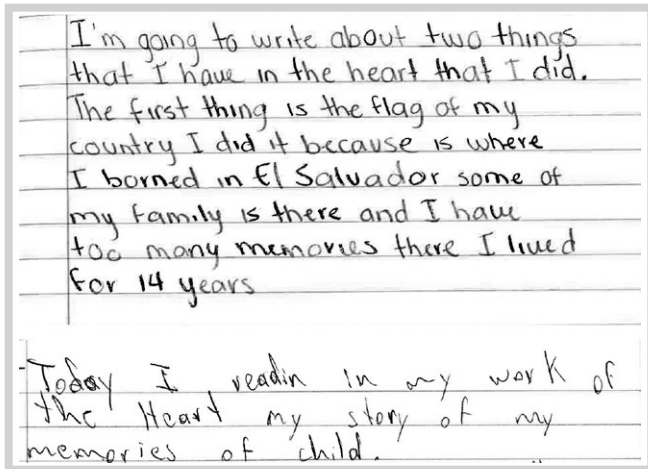 I'm going to write about two things
that I have in the heart that I did.
The first thing is the flag of my
country I did it because is where
I borned in El Salvador some of
my family is there and I have
too many memories there I lived
for 14 years
Today I readin in my work of
the Heart my story of my
memories of child.